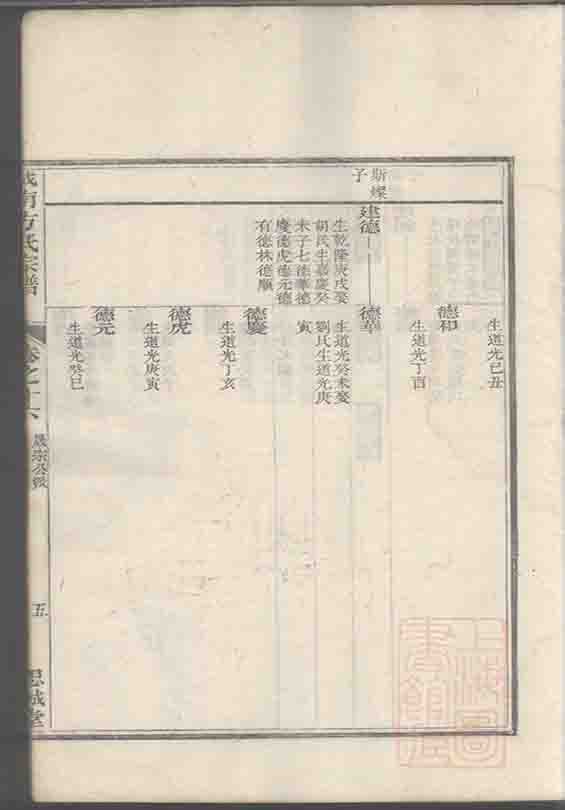 斯燦
子
建德
生乾隆庚戌娶
胡氏生嘉慶癸
未子七德華德
慶德虎德元德
有德林德順
生道光己丑
德和
生道光丁酉
德華
生道光癸未娶
劉氏生道光庚
寅
德慶
生道光丁亥
德虎
生道光庚寅
德元
生道光癸巳
南方氏宗譜
卷之十六
晟宗公股
五
思誠堂
上海圖書館藏